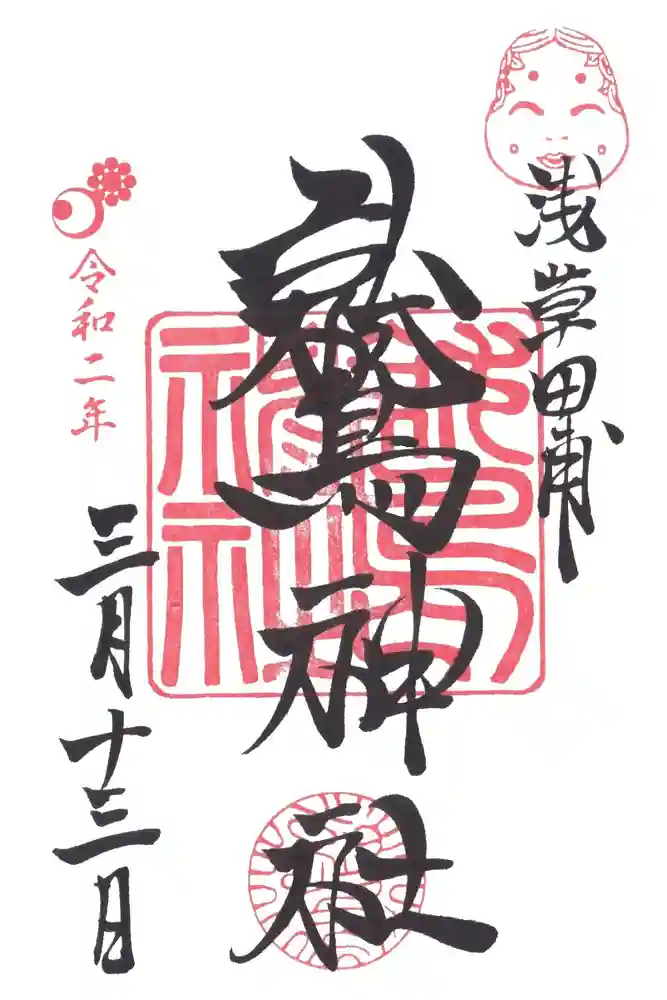 浅草田甫
鷲神社
令和二年
三月十三日
鷲神社